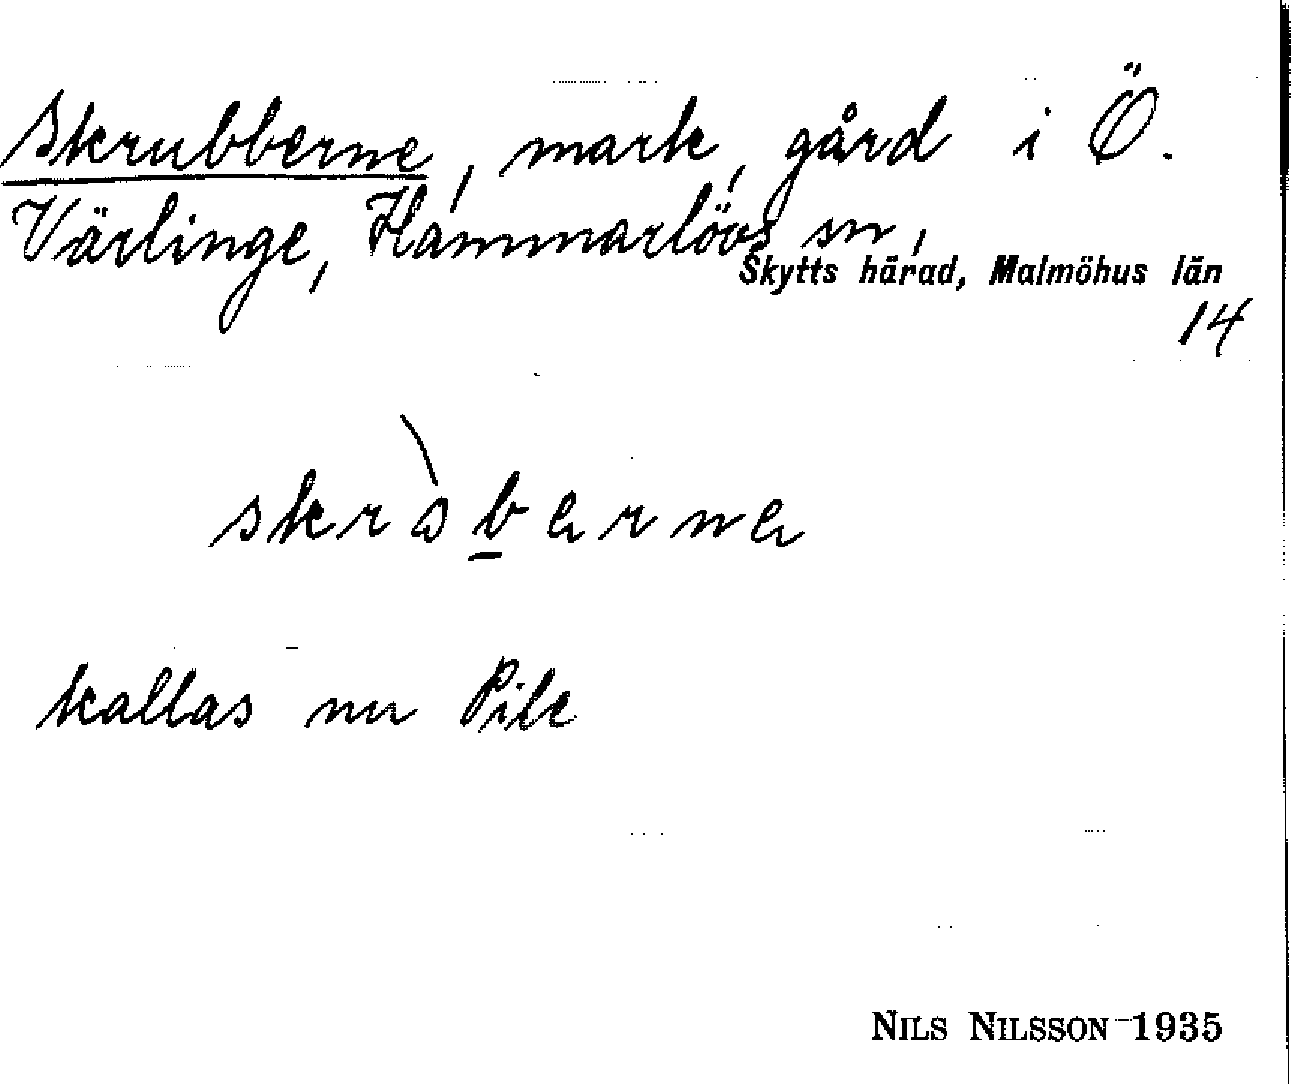 Skrubberne, mark, gård i Ö.
Värlinge, Hammarlövs sn,
Skytts härad, Malmöhus län
14
skrὰbernə
kallas nu Pile
NILS NILSSON 1935